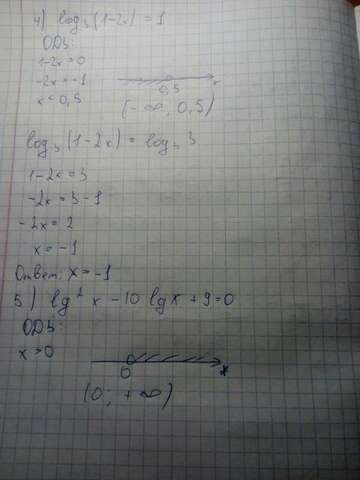 4) log₃(1-2x) = 1
ОДЗ:
1-2x>0
-2x>-1
x<0,5
0,5 x
(-∞, 0,5)
log₃(1-2x) = log₃ 3
1-2x=3
-2x=3-1
-2x=2
x=-1
Ответ: x=-1
5) lg²x -10 lgx +9=0
ОДЗ:
x>0
0 x
(0; +∞)